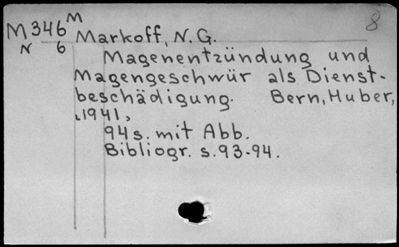 M346 M Markoff, N.G. 8
N 6
Magenentzündung und
Magengeschwür als Dienst-
beschädigung. Bern, Huber,
‹1941›
94 s. mit Abb.
Bibliogr. s. 93-94.